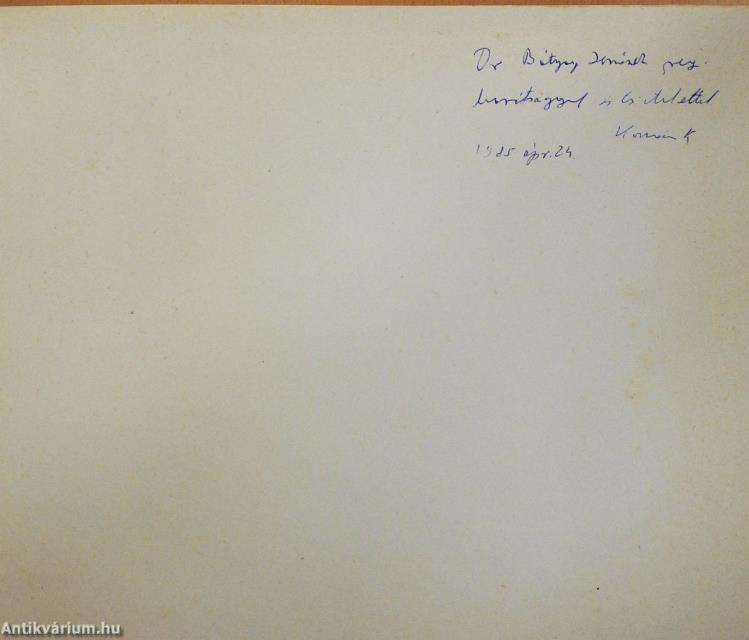 Dr Bátyay Jenőnek régi
barátsággal és tisztelettel
Korwin K
1985 ápr. 24.
Antikvárium.hu